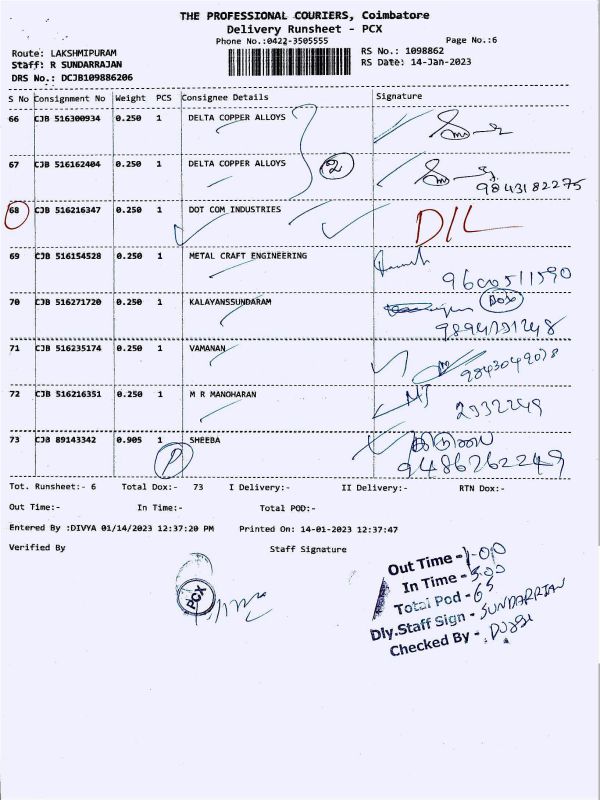 THE PROFESSIONAL COURIERS, Coimbatore
Delivery Runsheet - PCX
Phone No.:0422-3505555 Page No.:6
Route: LAKSHMIPURAM RS No.: 1098862
Staff: R SUNDARRAJAN RS Date: 14-Jan-2023
DRS No.: DCJB109886206
S No Consignment No Weight PCS Consignee Details Signature
66 CJB 516300934 0.250 1 DELTA COPPER ALLOYS
67 CJB 516162404 0.250 1 DELTA COPPER ALLOYS 2
9843182275
68 CJB 516216347 0.250 1 DOT COM INDUSTRIES D/L
69 CJB 516154528 0.250 1 METAL CRAFT ENGINEERING
9600511590
70 CJB 516271720 0.250 1 KALAYANSSUNDARAM Box
71 CJB 516235174 0.250 1 VAMANAN
72 CJB 516216351 0.250 1 M R MANOHARAN MJ
2932249
73 CJB 89143342 0.905 1 SHEEBA
P 9486262249
Tot. Runsheet:- 6 Total Dox:- 73 I Delivery:- II Delivery:- RTN Dox:-
Out Time:- In Time:- Total POD:-
Entered By :DIVYA 01/14/2023 12:37:20 PM Printed On: 14-01-2023 12:37:47
Verified By Staff Signature
PCX
Out Time - 1-00
In Time - 5.00
Total Pod - 65
Dly.Staff Sign - SUNDARRIAN
Checked By -